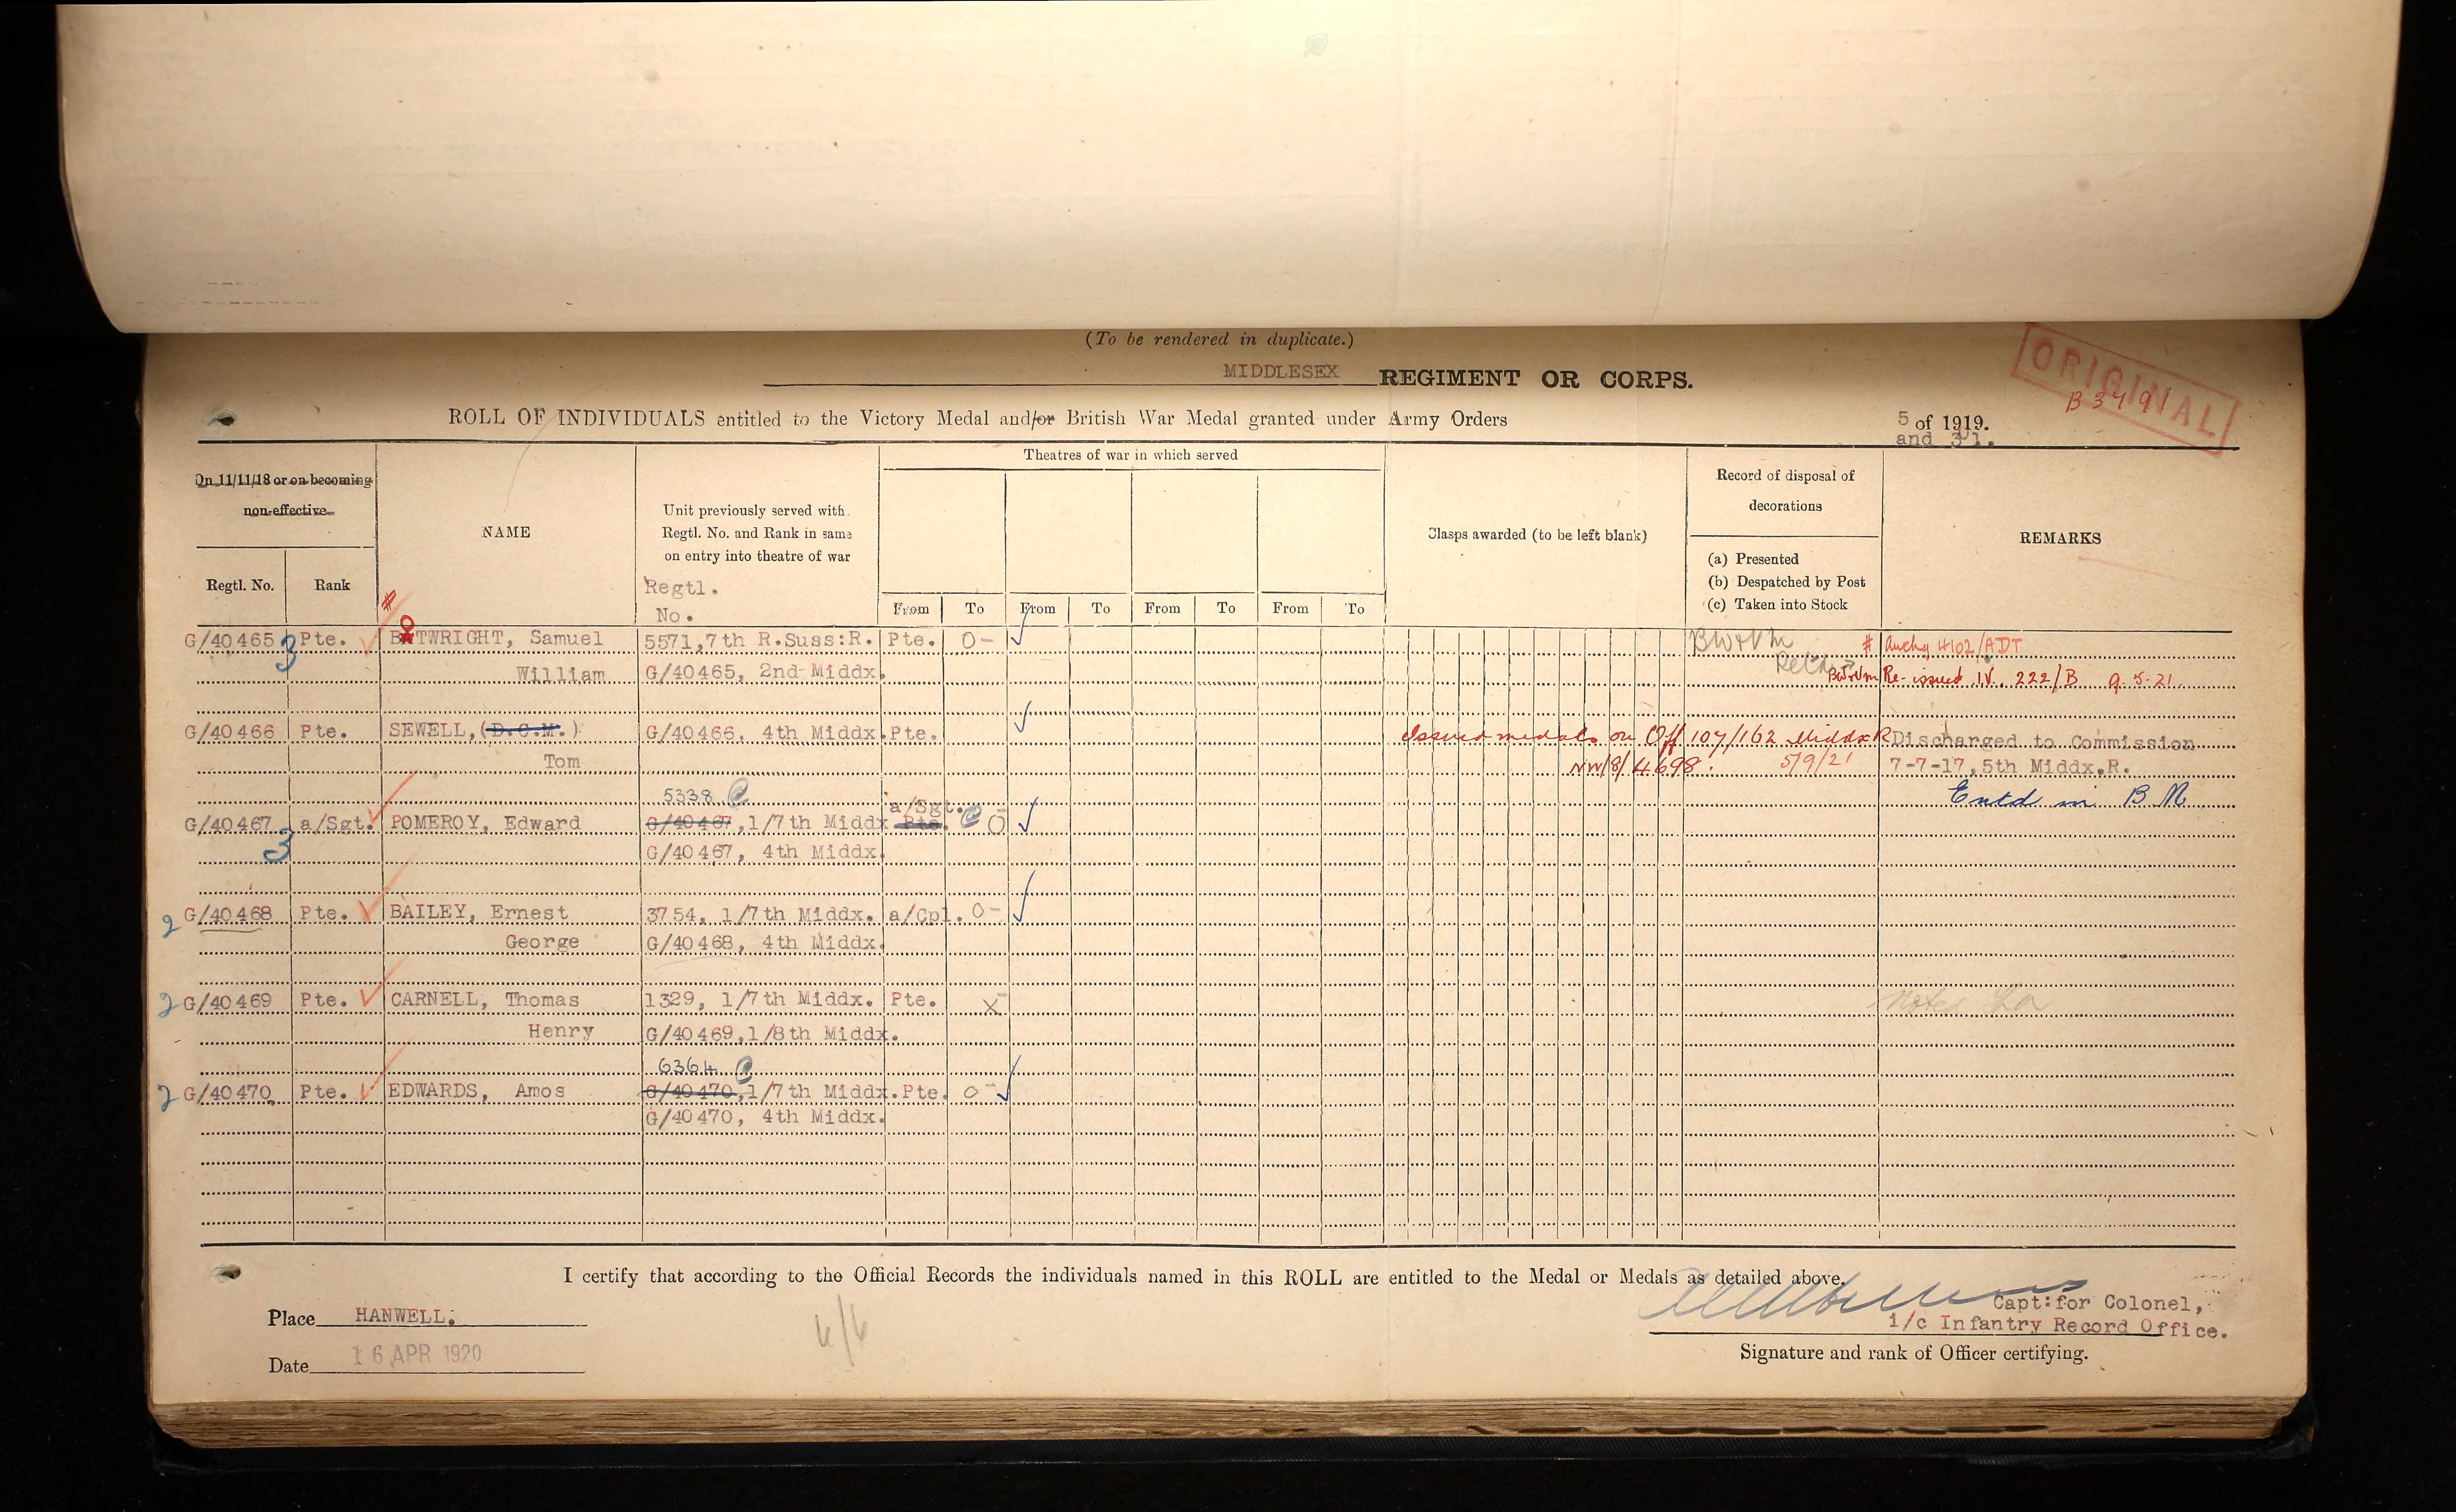 (To be rendered in duplicate.)
MIDDLESEX REGIMENT OR CORPS.
ORIGINAL
B 3491
ROLL OF INDIVIDUALS entitled to the Victory Medal and/or British War Medal granted under Army Orders 5 of 1919.
and 31.
On 11/11/18 or on becoming non-effective
Regtl. No.
Rank
NAME
Unit previously served with.
Regtl. No. and Rank in same
on entry into theatre of war
Regtl.
No.
Theatres of war in which served
From To From To From To From To
Clasps awarded (to be left blank)
Record of disposal of
decorations
(a) Presented
(b) Despatched by Post
(c) Taken into Stock
REMARKS
G/40465 3 Pte. BOTWRIGHT, Samuel 5571,7th R.Suss:R. Pte. O- BW+VM # Auchy 4102/ADT
William G/40465, 2nd Middx. Retd BW+VM Re-issued I.V. 222/B 9.5.21.
G/40466 Pte. SEWELL,(D.C.M.) G/40466, 4th Middx. Pte. Issued medals on Off 107/162 Middx R Discharged to Commission
Tom NW/8/4698. 5/9/21 7-7-17,5th Middx.R.
Entd in B M
5338 a/Sgt.
G/40467 3 a/Sgt. POMEROY, Edward G/40467,1/7th Middx Pte. O
G/40467, 4th Middx.
2 G/40468 Pte. BAILEY, Ernest 3754, 1/7th Middx. a/Cpl. O-
George G/40468, 4th Middx.
2 G/40469 Pte. CARNELL, Thomas 1329, 1/7th Middx. Pte. X
Henry G/40469,1/8th Middx.
6364
2 G/40470 Pte. EDWARDS, Amos G/40470,1/7th Middx. Pte. O-
G/40470, 4th Middx.
I certify that according to the Official Records the individuals named in this ROLL are entitled to the Medal or Medals as detailed above.
Place HANWELL.
Date 16 APR 1920
6/6
Capt:for Colonel,
i/c Infantry Record Office.
Signature and rank of Officer certifying.